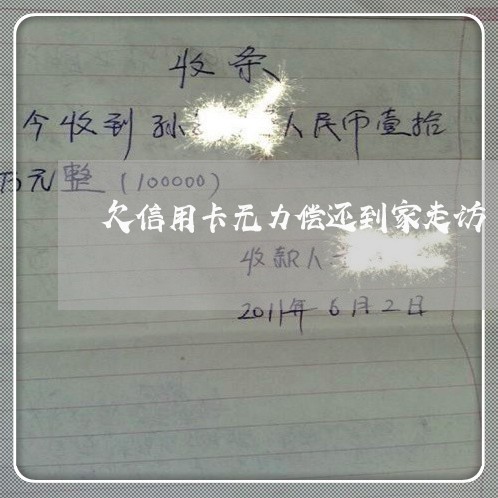 收条
今收到孙 人民币壹拾
万元整(100000)
欠信用卡无力偿还到家走访
收款人
2011年6月2日